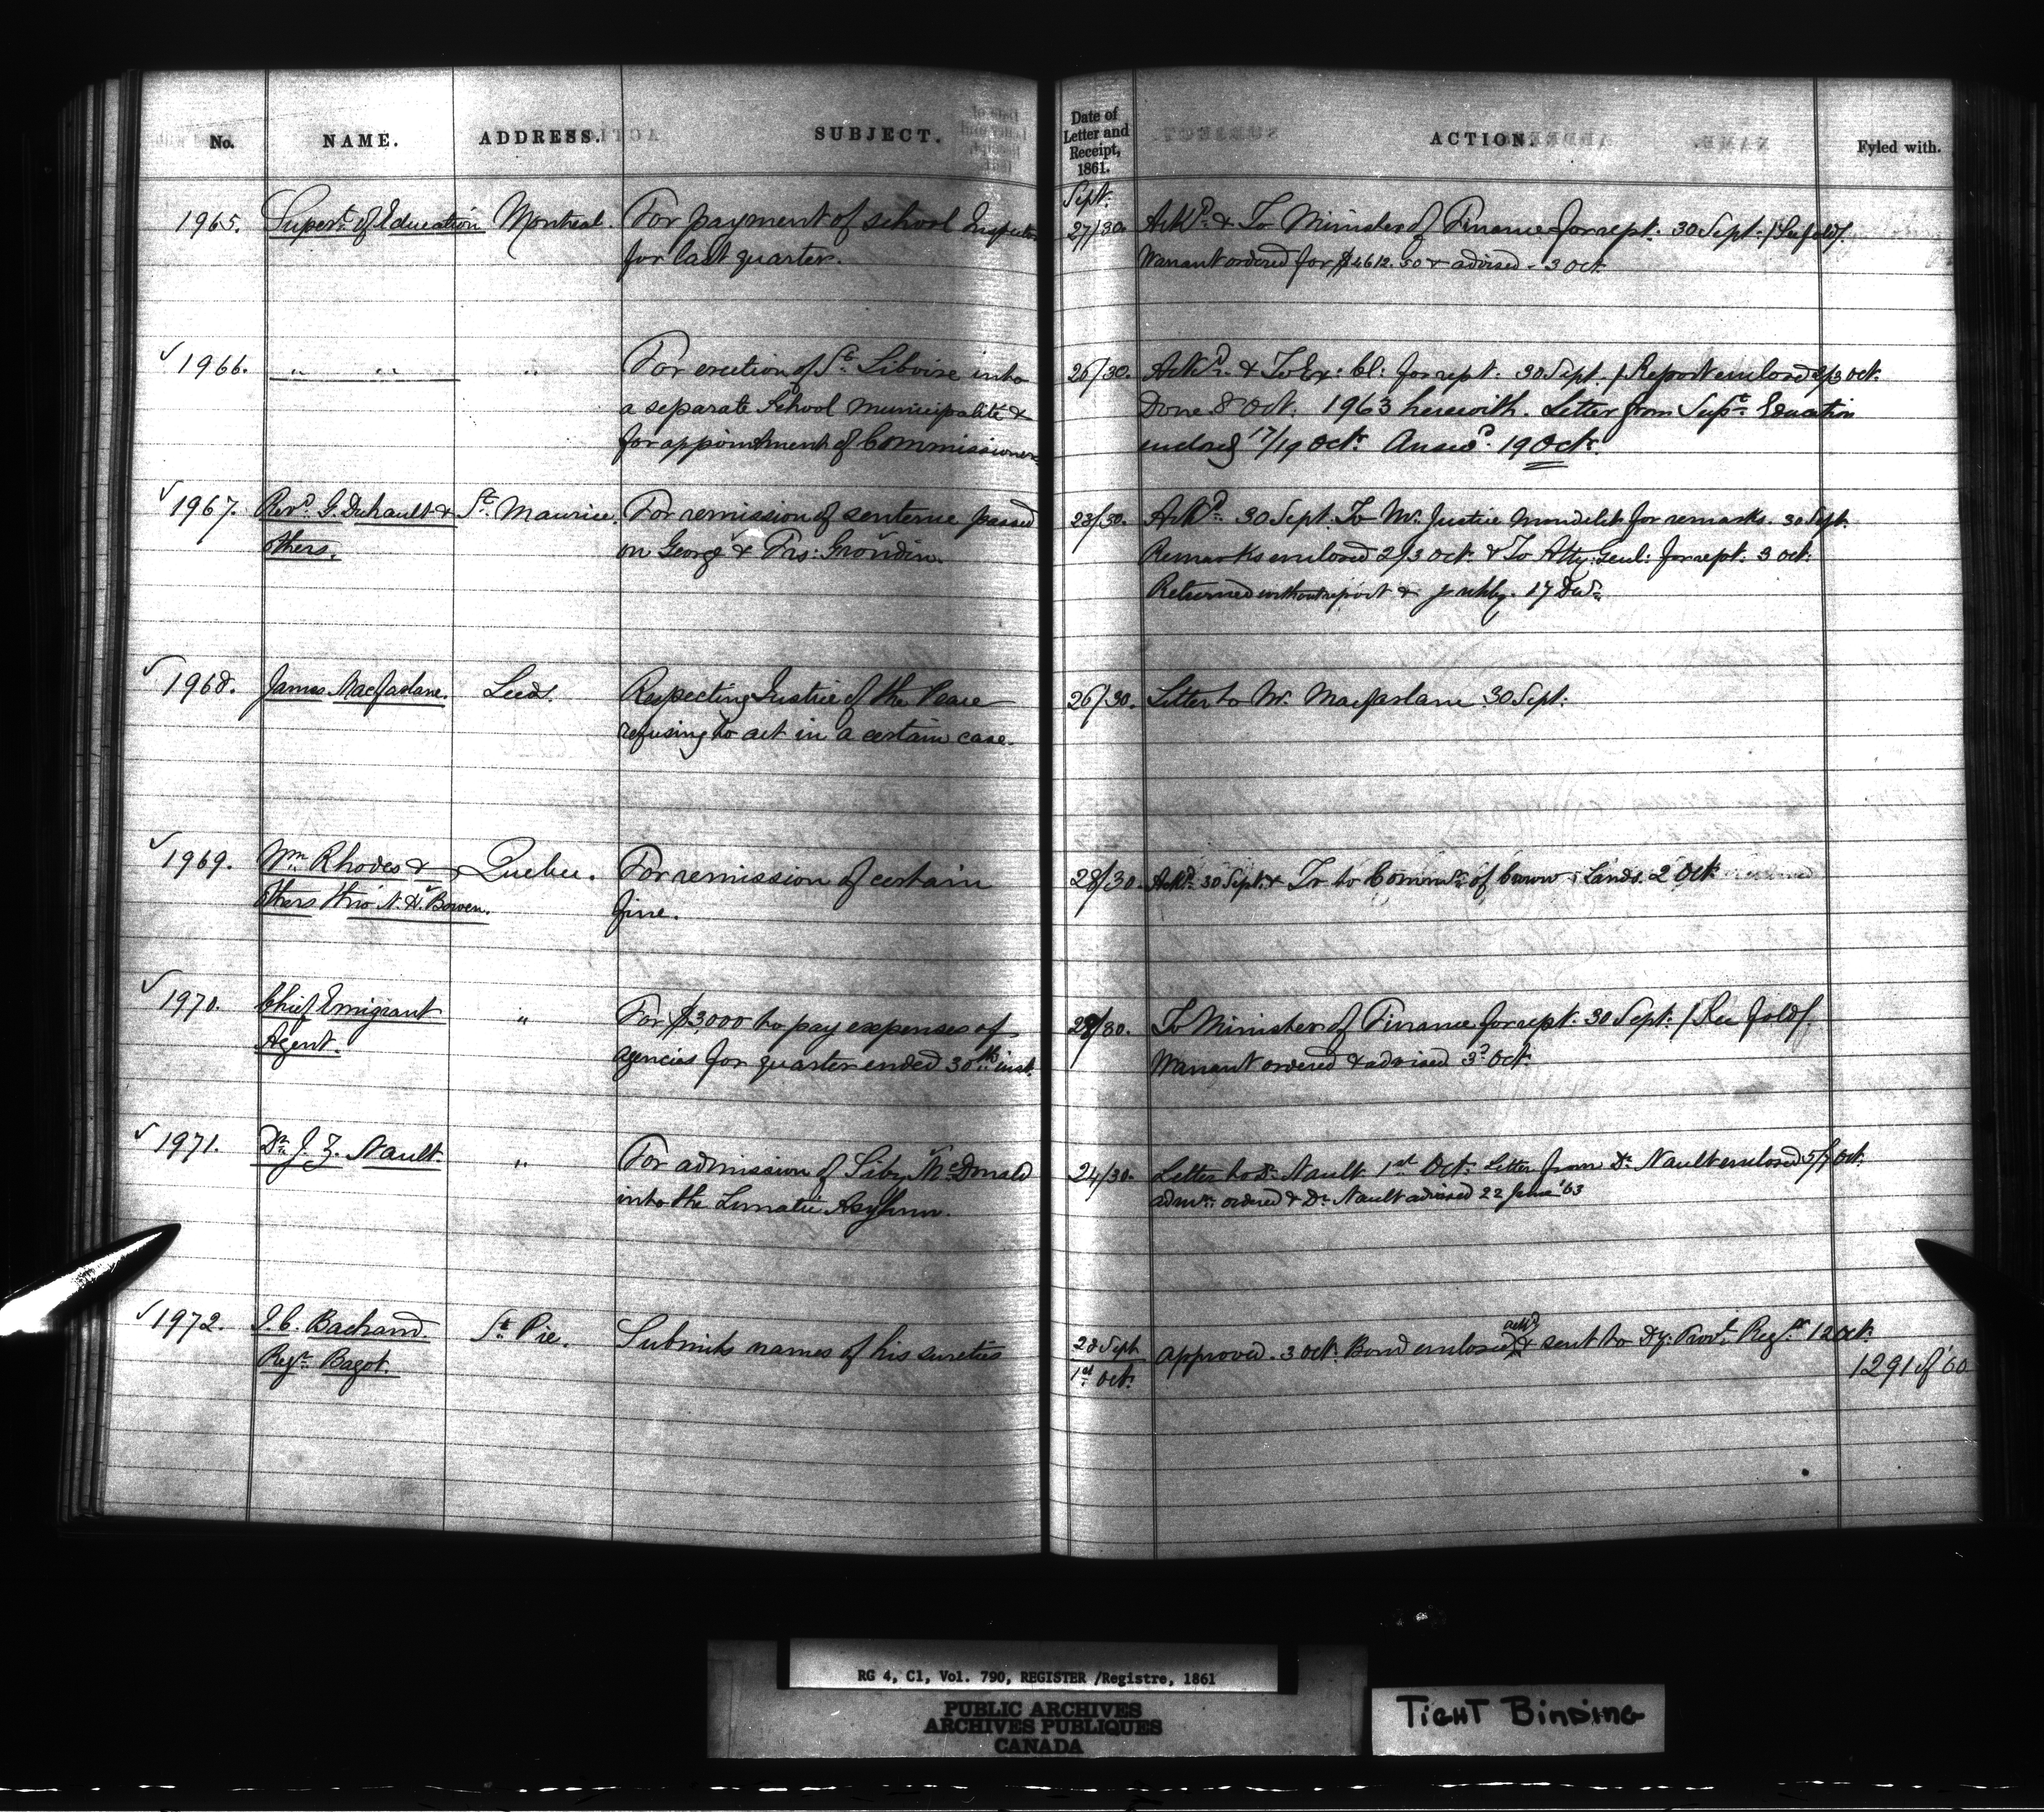 No. NAME. ADDRESS. SUBJECT. Date of Letter and Receipt, 1861. ACTION. Fyled with.
Sept.
1965. Supert. of Education Montreal. For payment of school Inspectors 27/30. Ackd. & To Minister of Finance for rept. 30 Sept. /
for last quarter. Warrant ordered for $4612.50 & advised - 3 Oct.
1966. " " " For erection of St. Liboire into 26/30. Ackd. & To Ex: Cl: for rept. 30 Sept. / Report enclosed 2/3 Oct.
a separate School Municipality & Done 8 Oct. 1963 herewith. Letter from Supt. Education
for appointment of Commissioners enclosg 17/19 Oct. Answd. 19 Oct.
1967. Revd. G. Duhault & St. Maurice. For remission of sentence passed 28/30. Ackd. 30 Sept. To Mr. Justice Mondelet for remarks. 30 Sept.
others. on George & Frs: Grondin. Remarks enclosed 2/3 Oct. & To Atty: Genl: for rept. 3 Oct.
Returned without report & 17 Decr.
1968. James Macfarlane. Leeds. Respecting Justice of the Peace 26/30. Letter to Mr. Macfarlane 30 Sept.
refusing to act in a certain case.
1969. Wm. Rhodes & Quebec. For remission of certain 28/30. Ackd. 30 Sept. & Tr to Commr. of Crown Lands. 2 Oct.
others thro' N. H. Bowen. fine.
1970. Chief Emigrant " For $3000 to pay expenses of 28/30. To Minister of Finance for rept. 30 Sept. /
Agent. agencies for quarter ended 30th. inst. Warrant ordered & advised 3d Oct.
1971. Dr. J. Z. Nault. " For admission of Siby McDonald 24/30. Letter to Dr. Nault 1st Oct. Letter from Dr. Nault enclosed 5/7 Oct.
into the Lunatic Asylum. admn. ordered & Dr. Nault advised 22 June '63
1972. J. C. Bachand. St. Pie. Submits names of his sureties 28 Sept. Approved. 3 Oct. Bond enclosed ackd & sent to Dy: Provl. Regr. 12 Oct.
Regr. Bagot. 1st. Oct. 1291 of '60
RG 4, C1, Vol. 790, REGISTER /Registre, 1861
PUBLIC ARCHIVES
ARCHIVES PUBLIQUES
CANADA
TIGHT BINDING